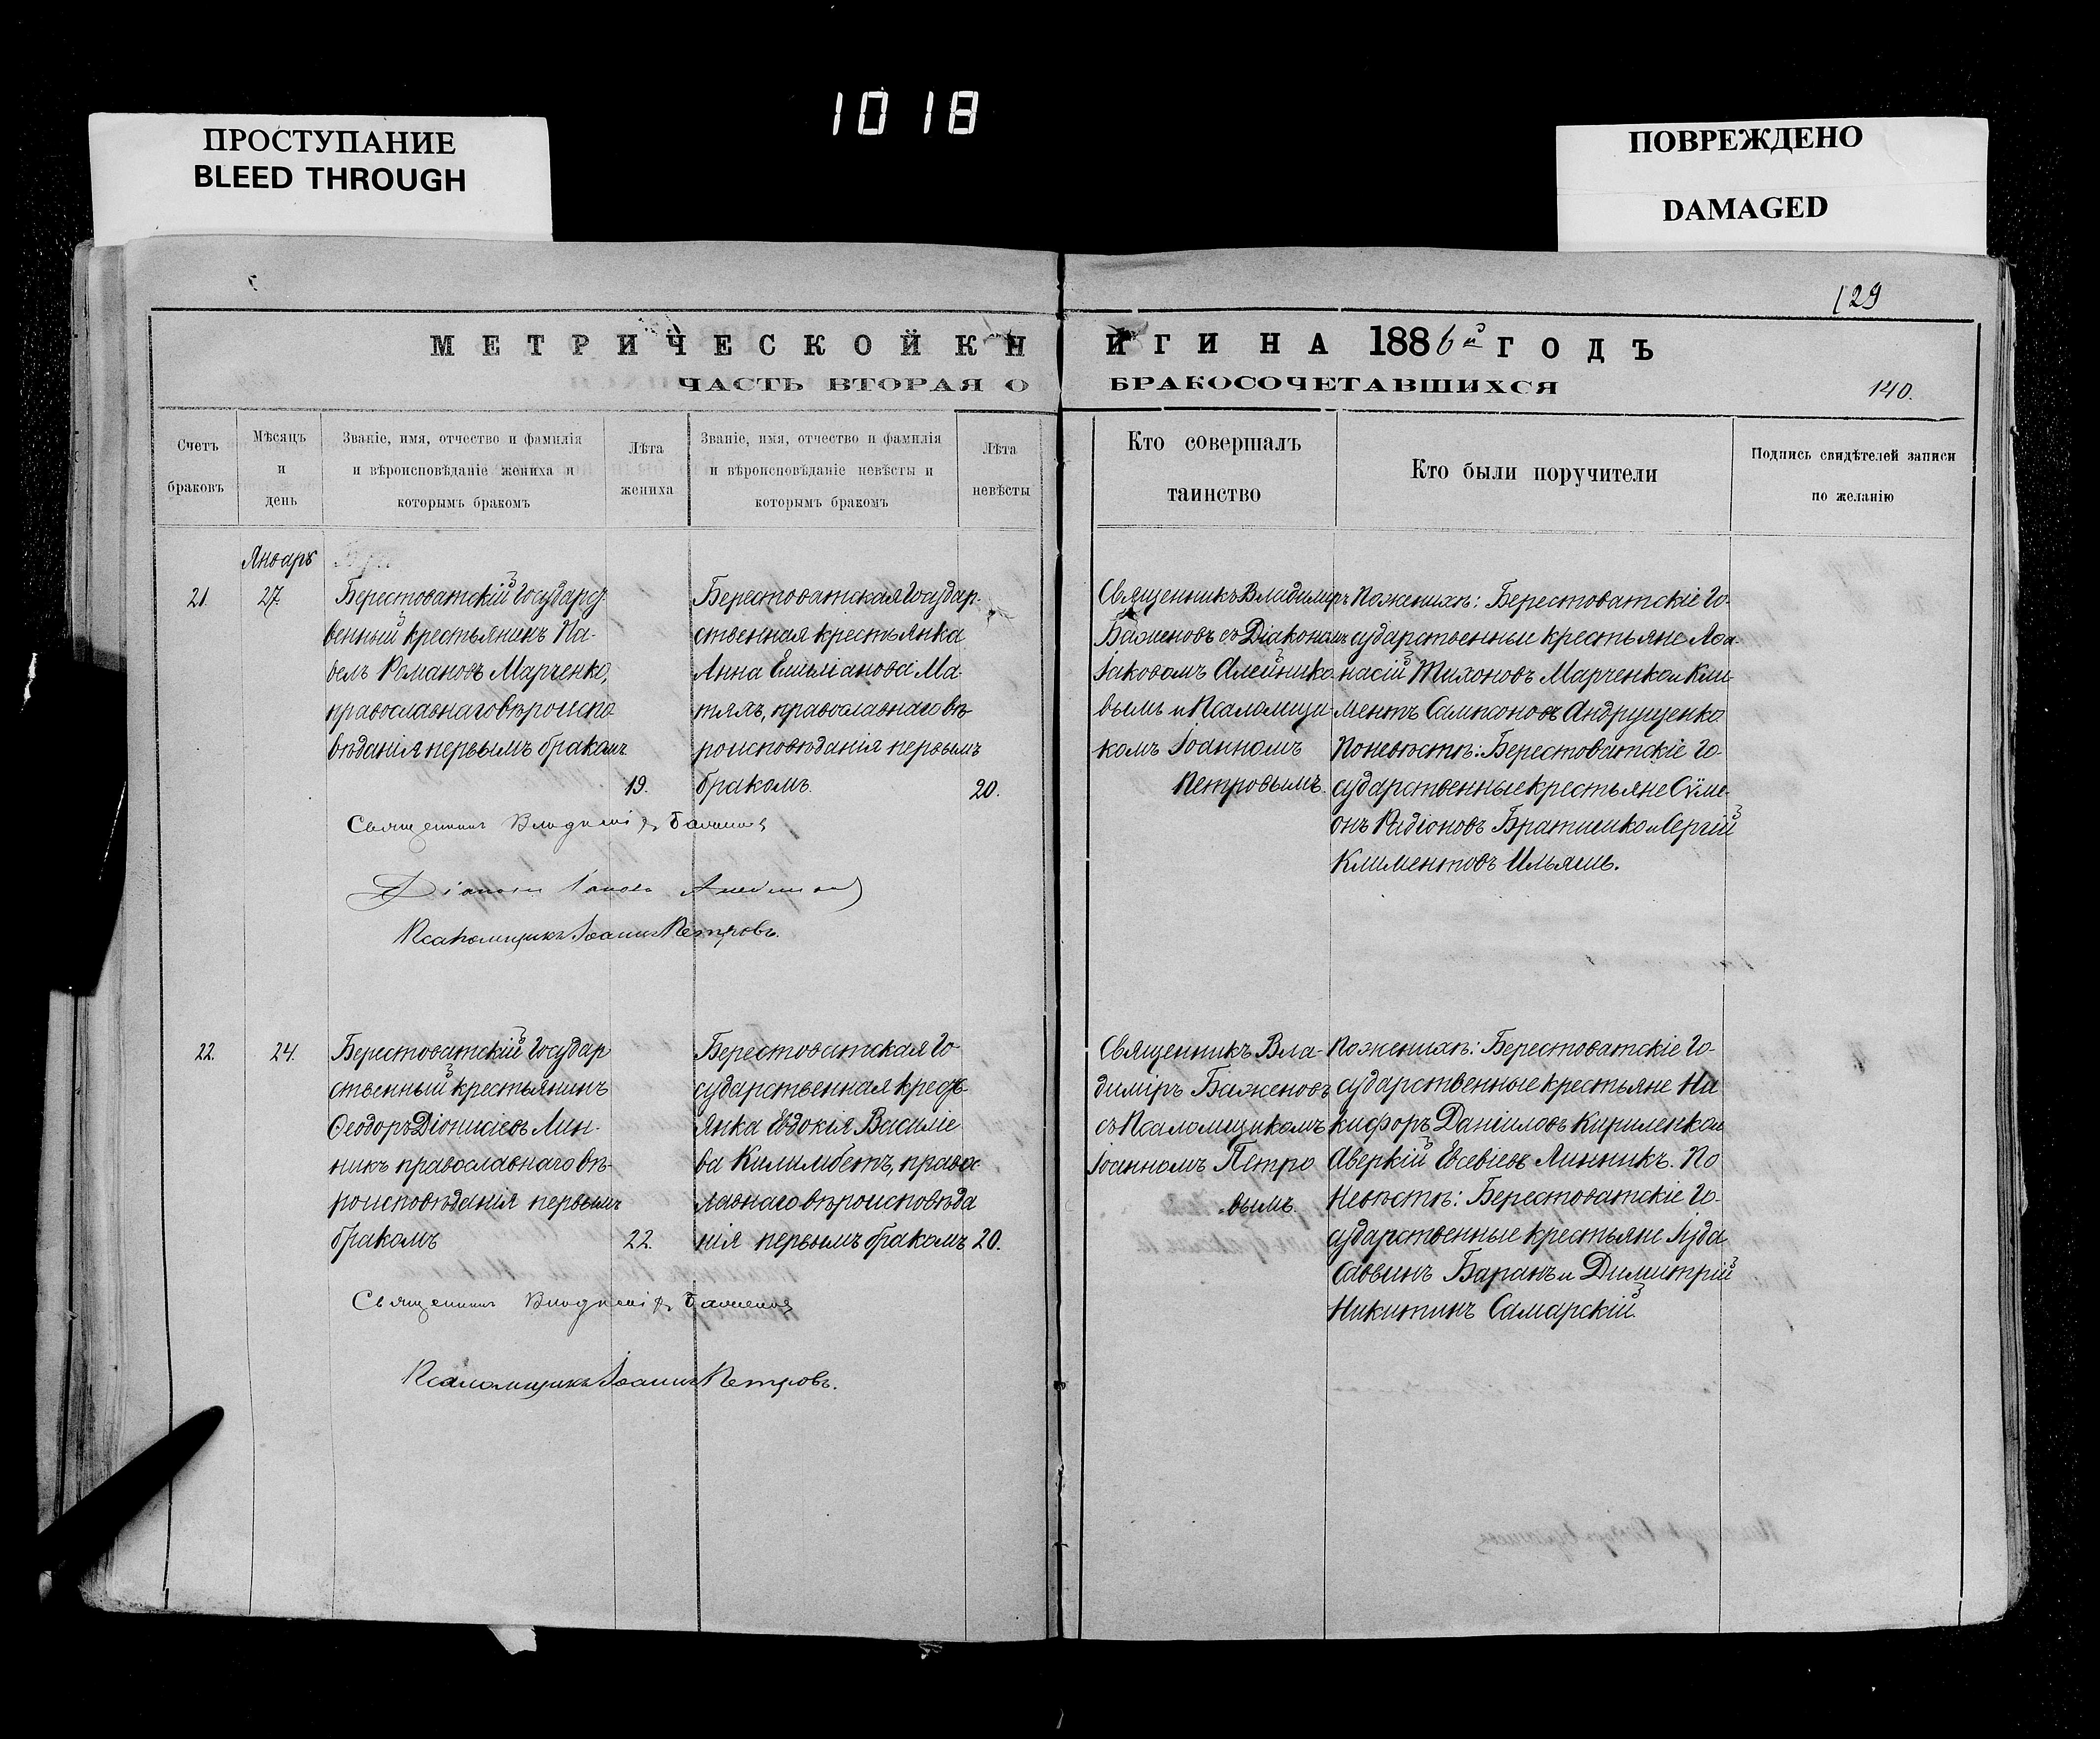 1018
ПРОСТУПАНИЕ
BLEED THROUGH
ПОВРЕЖДЕНО
DAMAGED
129
МЕТРИЧЕСКОЙ КНИГИ НА 1886й ГОДЪ
ЧАСТЬ ВТОРАЯ О БРАКОСОЧЕТАВШИХСЯ
140.
Счетъ
браковъ
Мѣсяцъ
и
день
Званіе, имя, отчество и фамилія
и вѣроисповѣданіе жениха и
которымъ бракомъ
Лѣта
жениха
Званіе, имя, отчество и фамилія
и вѣроисповѣданіе невѣсты и
которымъ бракомъ
Лѣта
невѣсты
Кто совершалъ
таинство
Кто были поручители
Подпись свидѣтелей записи
по желанію
Январь
21.
27.
Берестоватскій Государст-
венный крестьянинъ Па-
велъ Романовъ Марченко,
православнаго вѣроиспо-
вѣданія первымъ бракомъ
19.
Берестоватская Государ-
ственная крестьянка
Анна Емиліанова Ма-
тяхъ, православнаго вѣ-
роисповѣданія первымъ
бракомъ.
20.
Священникъ Владиміръ
Баженовъ съ Діакономъ
Іаковомъ Алейнико-
вымъ и Псаломщи-
комъ Іоанномъ
Петровымъ.
По женихѣ: Берестоватскіе Го-
сударственные крестьяне Аѳа-
насій Тихоновъ Марченко и Кли-
ментъ Сампсоновъ Андрущенко
По невѣстѣ: Берестоватскіе Го-
сударственные крестьяне Сѵме-
онъ Радіоновъ Братишко и Сергій
Климентовъ Ильяшь.
Священникъ Владиміръ Баженовъ
Діаконъ Іаковъ Алейниковъ
Псаломщикъ Іоаннъ Петровъ.
22.
24.
Берестоватскій Государ
ственный крестьянинъ
Ѳеодоръ Діонисіевъ Лин-
никъ православнаго вѣ-
роисповѣданія первымъ
бракомъ
22.
Берестоватская Го-
сударственная крестъ-
янка Евдокія Василіе
ва Килимбетъ, правос-
лавнаго вѣроисповѣда
нія первымъ бракомъ
20.
Священникъ Вла-
диміръ Баженовъ
съ Псаломщикомъ
Іоанномъ Петро
вымъ.
По женихѣ: Берестоватскіе Го-
сударственные крестьяне Ни
кифоръ Даніиловъ Кириленко и
Аверкій Евсевіевъ Линникъ. По
Невѣстѣ: Берестоватскіе Го-
сударственные крестьяне Іуда
Саввинъ Баранъ и Димитрій
Никитинъ Самарскій.
Священникъ Владиміръ Баженовъ
Псаломщикъ Іоаннъ Петровъ.